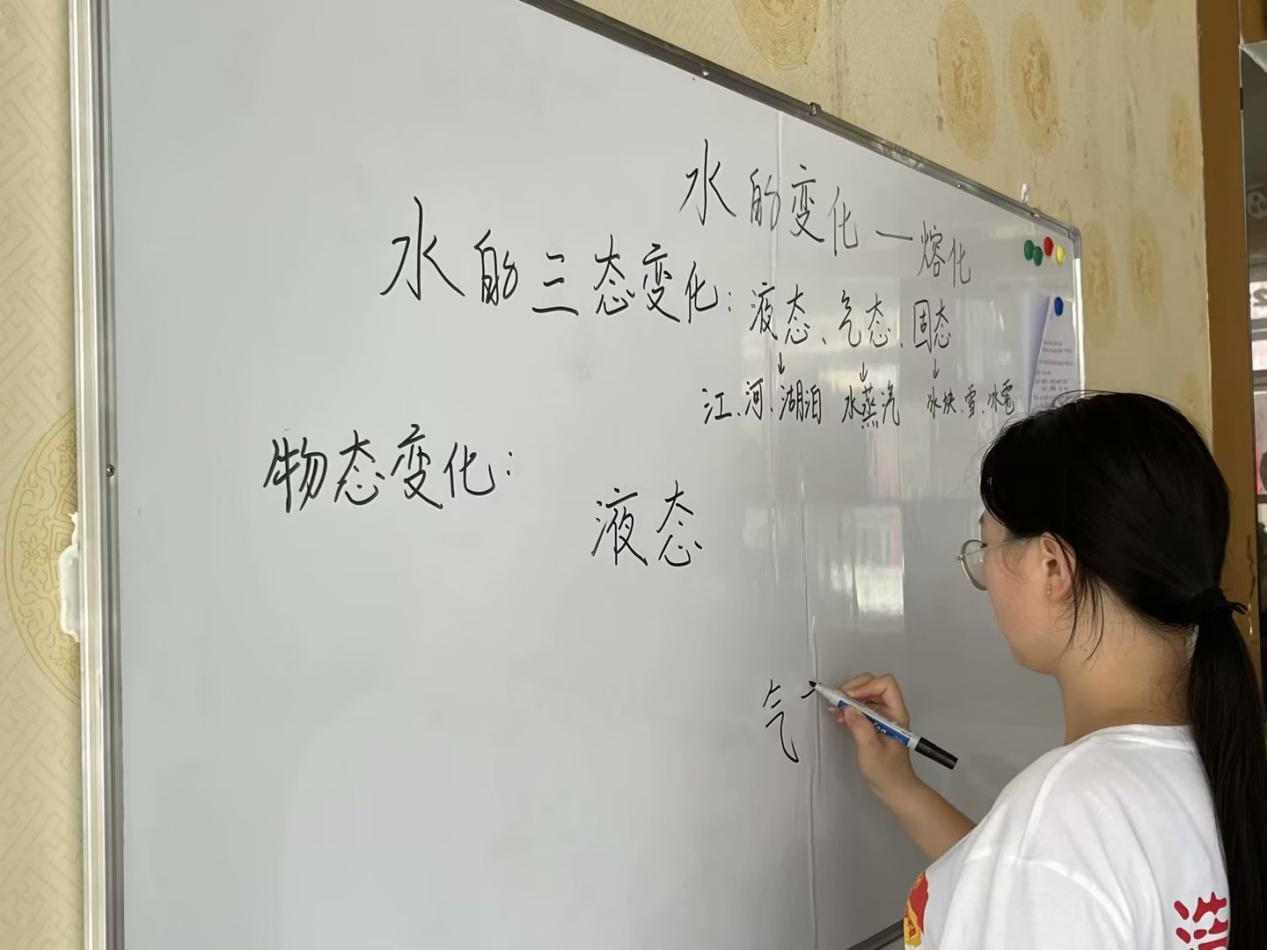 水的变化—熔化
水的三态变化：液态、气态、固态
↓ ↓ ↓
江、河、湖泊 水蒸汽 冰块、雪、冰雹
物态变化：
液态
气